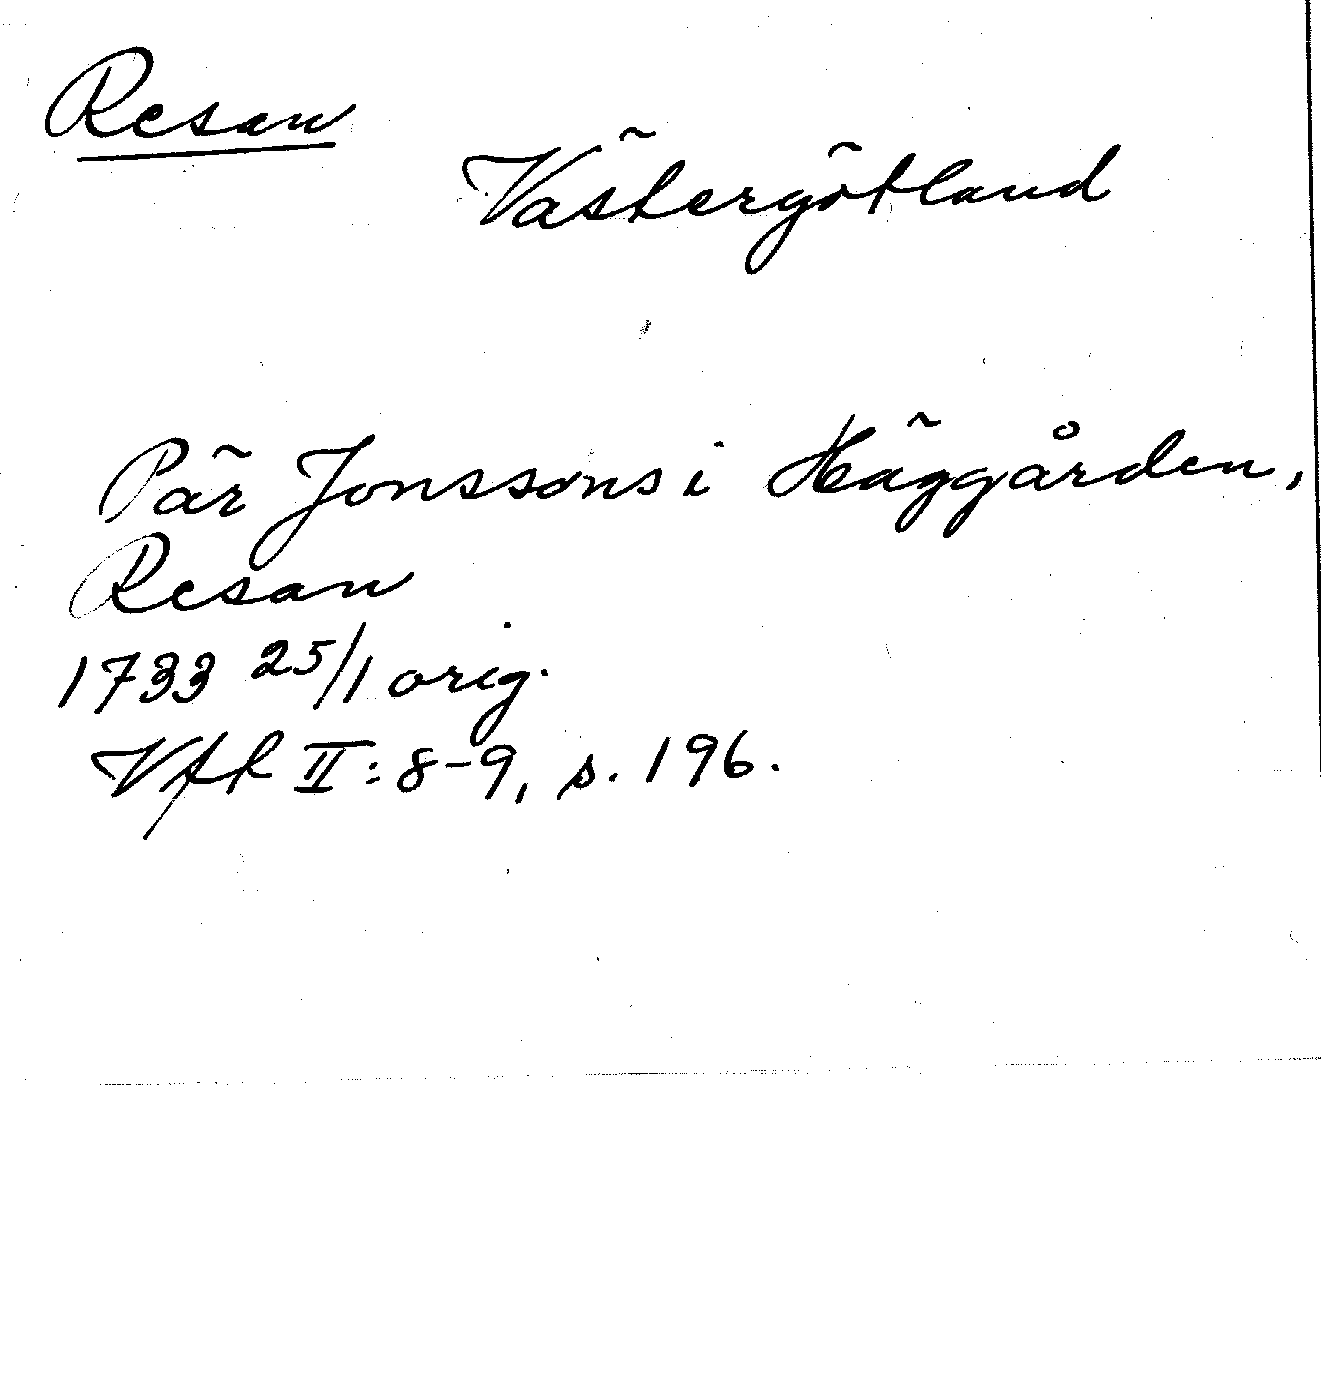 Resan
Västergötland
Pär Jonssons i Häggården,
Resan
1733 25/1 orig.
Vfr II: 8-9, s. 196.